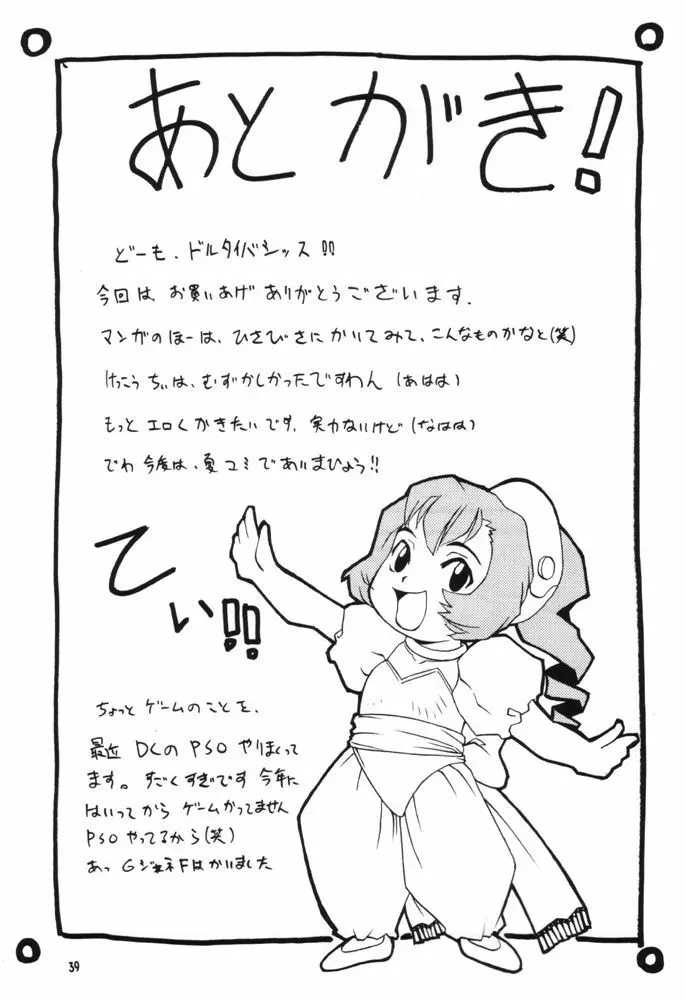 あとがき!
どーも、ドルタイバシッス!!
今回は、お買いあげありがとうございます.
マンガのほーは、ひさびさにかいてみて、こんなものかなと(笑)
けっこうちぃは、むずかしかったですわん (あはは)
もっとエロくかきたいです, 実力ないけど(なはは)
でわ今度は、夏コミであいまひょう!!
てぃ!!
ちょっとゲームのことを、
最近 DCの PSO やりまくって
ます。すごくすぎです 今年に
はいってから ゲームかってません
PSO やってるから(笑)
あっ GジェネFはかいました
39